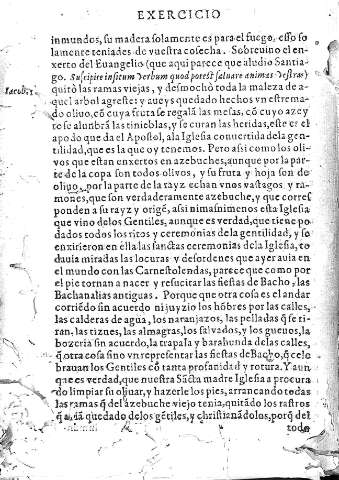 EXERCICIO
inmundos, su madera solamente es para el fuego, esso so
lamente teniades de vuestra cosecha. Sobrevino el en-
xerto del Euangelio (que aqui parece que aludio Santia-
go. Suscipite insitum verbum quod potest saluare animas vestras)
Iacobi.
quitò las ramas viejas, y desmochò toda la maleza de a-
quel arbol agreste: y aueys quedado hechos vn estrema-
do oliuo, cō cuya fruta se regalā las mesas, cō cuyo azey
te se alunbrā las tinieblas, y se curan las heridas, este es el
apodo que da el Apostol, ala Iglesia conuertida dela gen-
tilidad, que es la que oy tenemos. Pero assi como los oli-
vos que estan enxertos en azebuches, aunque por la par-
te de la copa son todos oliuos, y su fruta y hoja son de
oliuo, por la parte de la rayz echan vnos vastagos y ra-
mones, que son verdaderamente azebuche, y que corres
ponden a su rayz y origē, assi ni mas ni menos esta Iglesia
que vino delos Gentiles, aunque es verdad, que tiene po
dados todos los ritos y ceremonias dela gentilidad, y se
enxirieron en ella las sanctas ceremonias dela Iglesia, to
dauia miradas las locuras y desordenes que ay er auia en
el mundo con las Carnestolendas, parece que como por
el pie tornan a nacer y resucitar las fiestas de Bacho, las
Bachanalias antiguas. Porque que otra cosa es el andar
corriēdo sin acuerdo ni juyzio los hōbres por las calles,
las calderas de agua, los naranjazos, las pelladas q̄ se ti-
ran, las tiznes, las almagras, los saluados, y los gueuos, la
bozeria sin acuerdo, la trapala y barahunda delas calles,
q̄ otra cosa sino vn representar las fiestas de Bacho, q̄ cele
brauan los Gentiles cō tanta profanidad y rotura. Y aun
que es verdad, que nuestra Sācta madre Iglesia a procura
do limpiar su oliuar, y hazerle los pies, arrancando todas
las ramas q̄ del azebuche viejo tenia, quitādo los rastros
q̄ auiā quedado delos gētiles, y christianādolos, porq̄ del
todo